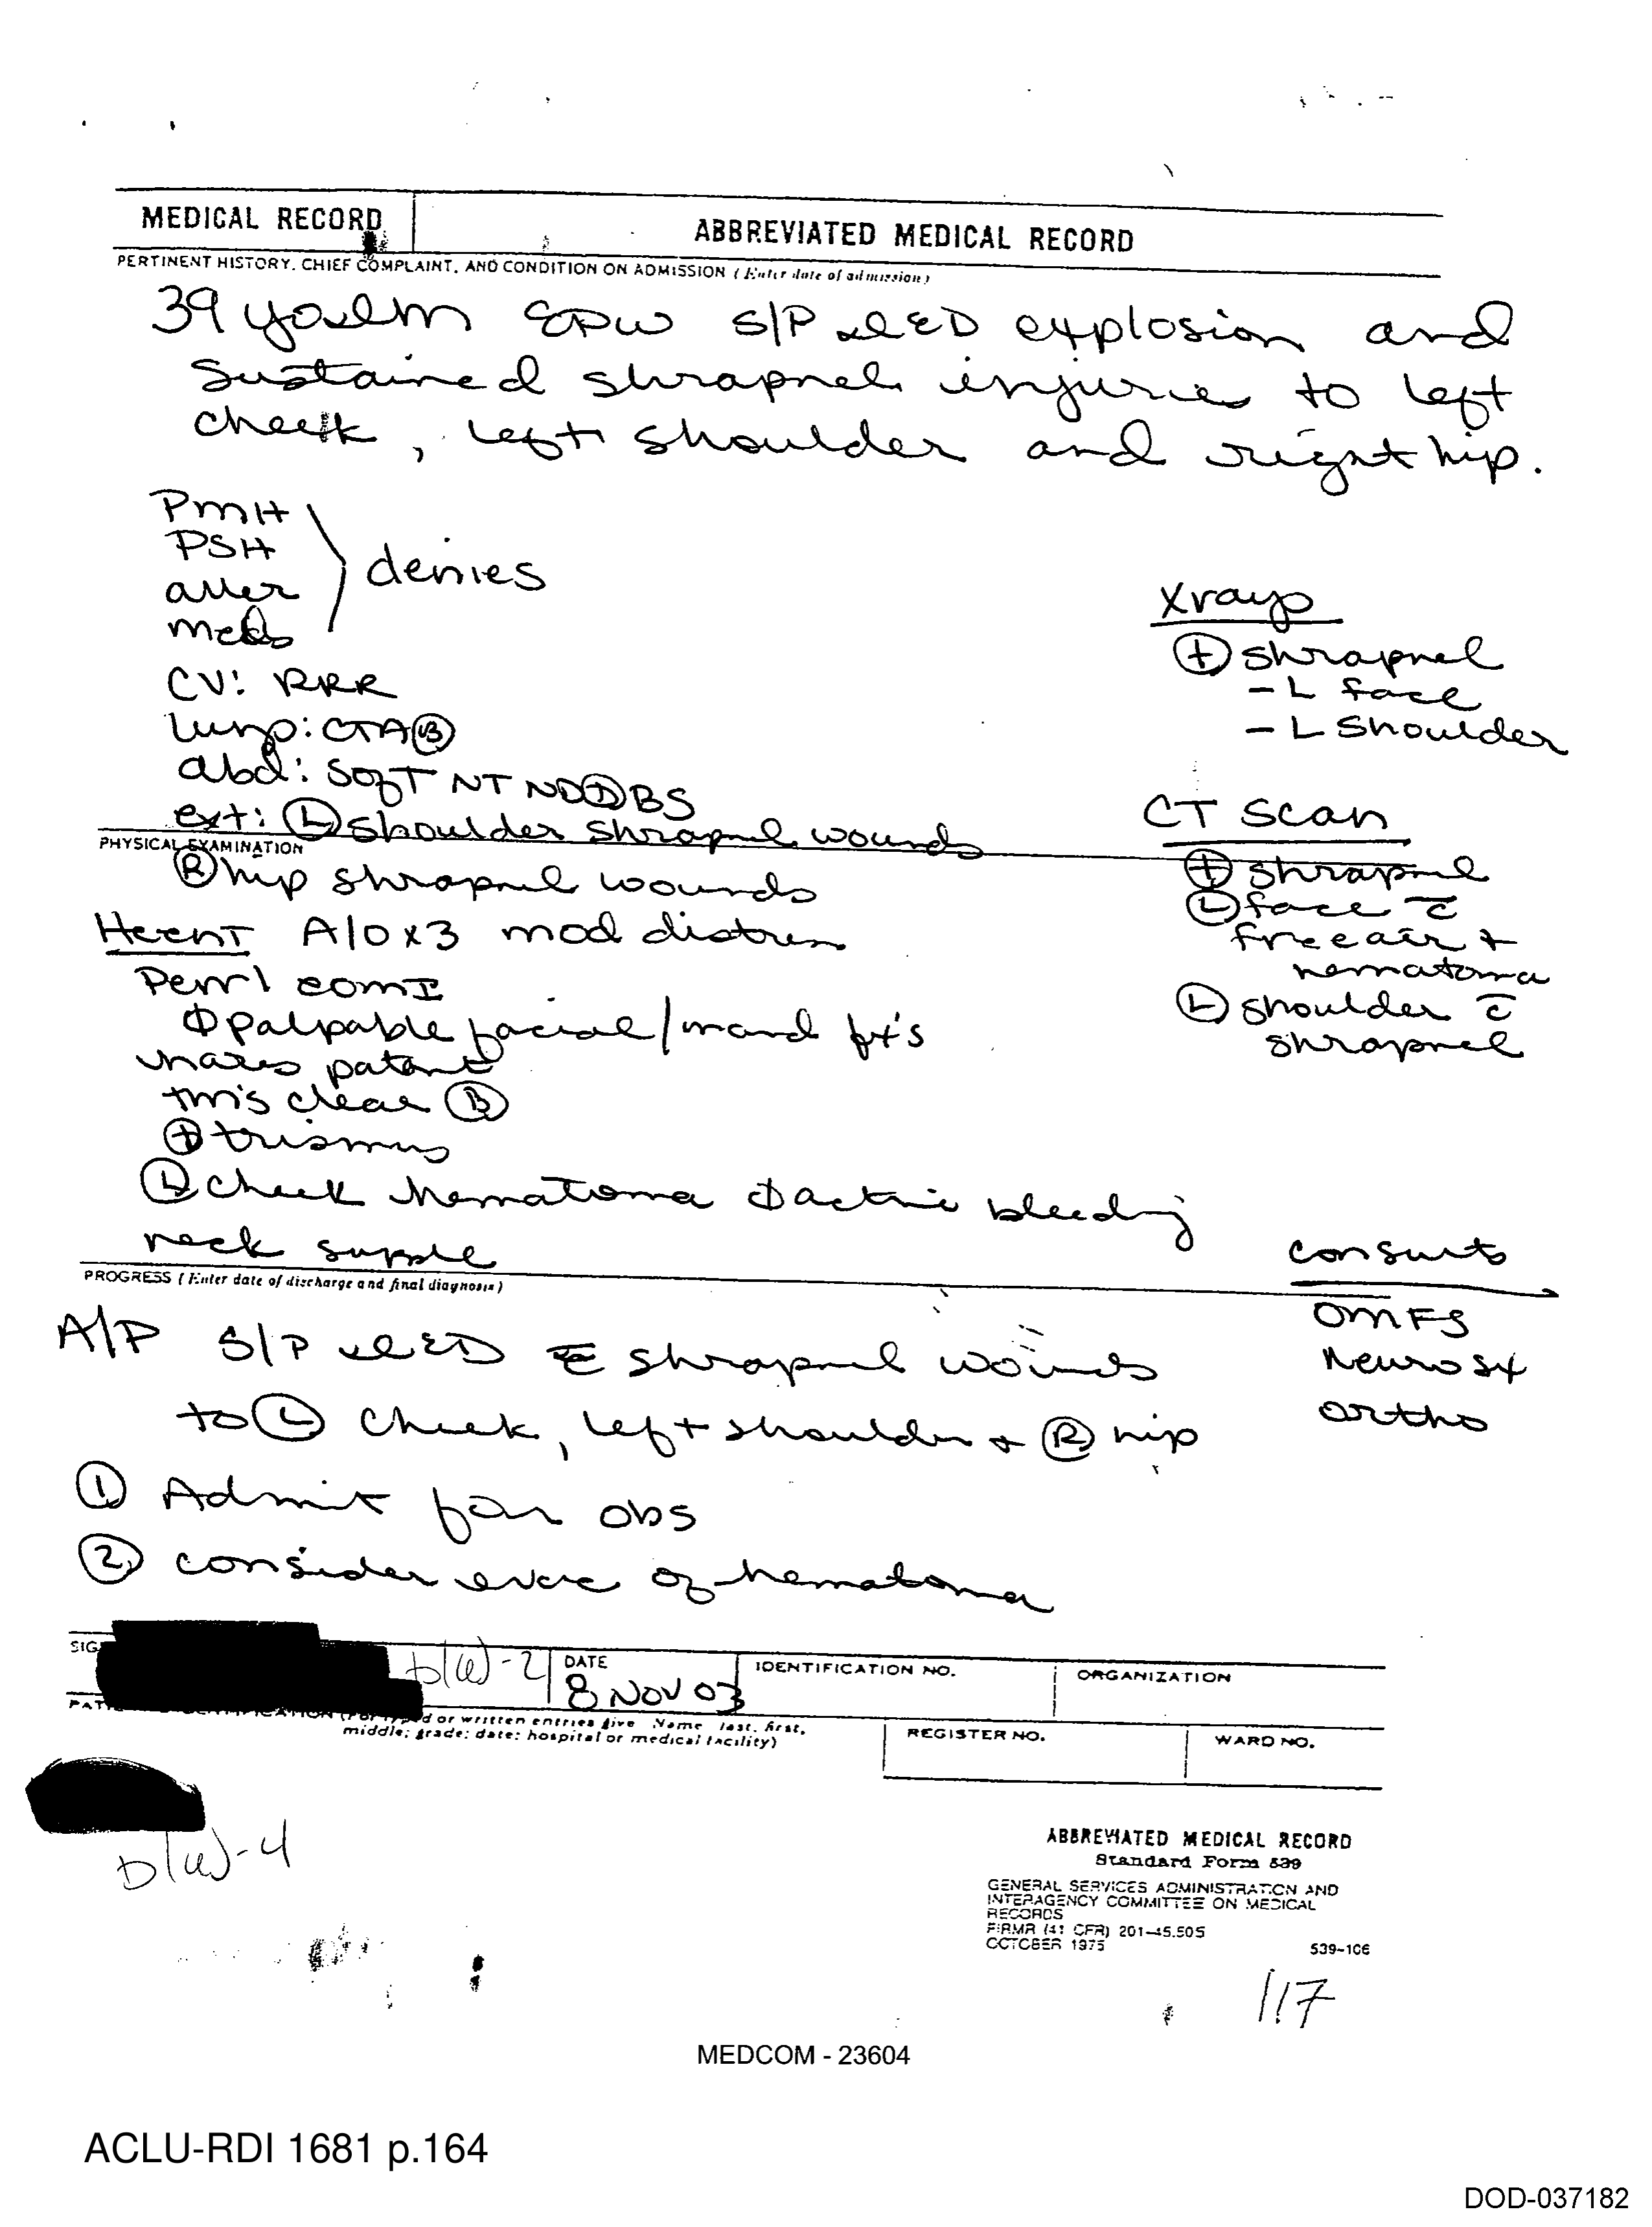 MEDICAL RECORD
ABBREVIATED MEDICAL RECORD
PERTINENT HISTORY, CHIEF COMPLAINT, AND CONDITION ON ADMISSION (Enter date of admission)
39 yo EPW S/P IED explosion and
sustained shrapnel injuries to left
cheek, left shoulder and right hip.
PMH
PSH
aller
meds
denies
CV: RRR
lungs: CTA Ⓑ
abd: soft NT ND ⊕ BS
ext: Ⓛ shoulder shrapnel wounds
PHYSICAL EXAMINATION
Ⓡ hip shrapnel wounds
Xrays
⊕ shrapnel
- L face
- L shoulder
CT Scan
⊕ shrapnel
Ⓛ face c̄
free air +
hematoma
Ⓛ shoulder c̄
shrapnel
HEENT A/O x3 mod distress
Perrl eomI
Φ palpable facial/mand fx's
nares patent
tm's clear Ⓑ
⊕ trismus
Ⓛ cheek hematoma Φ active bleeding
neck supple
PROGRESS (Enter date of discharge and final diagnosis)
consults
OMFS
Neurosx
ortho
A/P S/P IED c̄ shrapnel wounds
to Ⓛ cheek, left shoulder + Ⓡ hip
① Admit for obs
② consider evac of hematoma
SIG
b(6)-2
DATE
8 NOV 03
IDENTIFICATION NO.
ORGANIZATION
(For typed or written entries give Name last, first,
middle; grade; date; hospital or medical facility)
REGISTER NO.
WARD NO.
b(6)-4
ABBREVIATED MEDICAL RECORD
Standard Form 539
GENERAL SERVICES ADMINISTRATION AND
INTERAGENCY COMMITTEE ON MEDICAL
RECORDS
FIRMR (41 CFR) 201-45.505
OCTOBER 1975
539-106
117
MEDCOM - 23604
ACLU-RDI 1681 p.164
DOD-037182